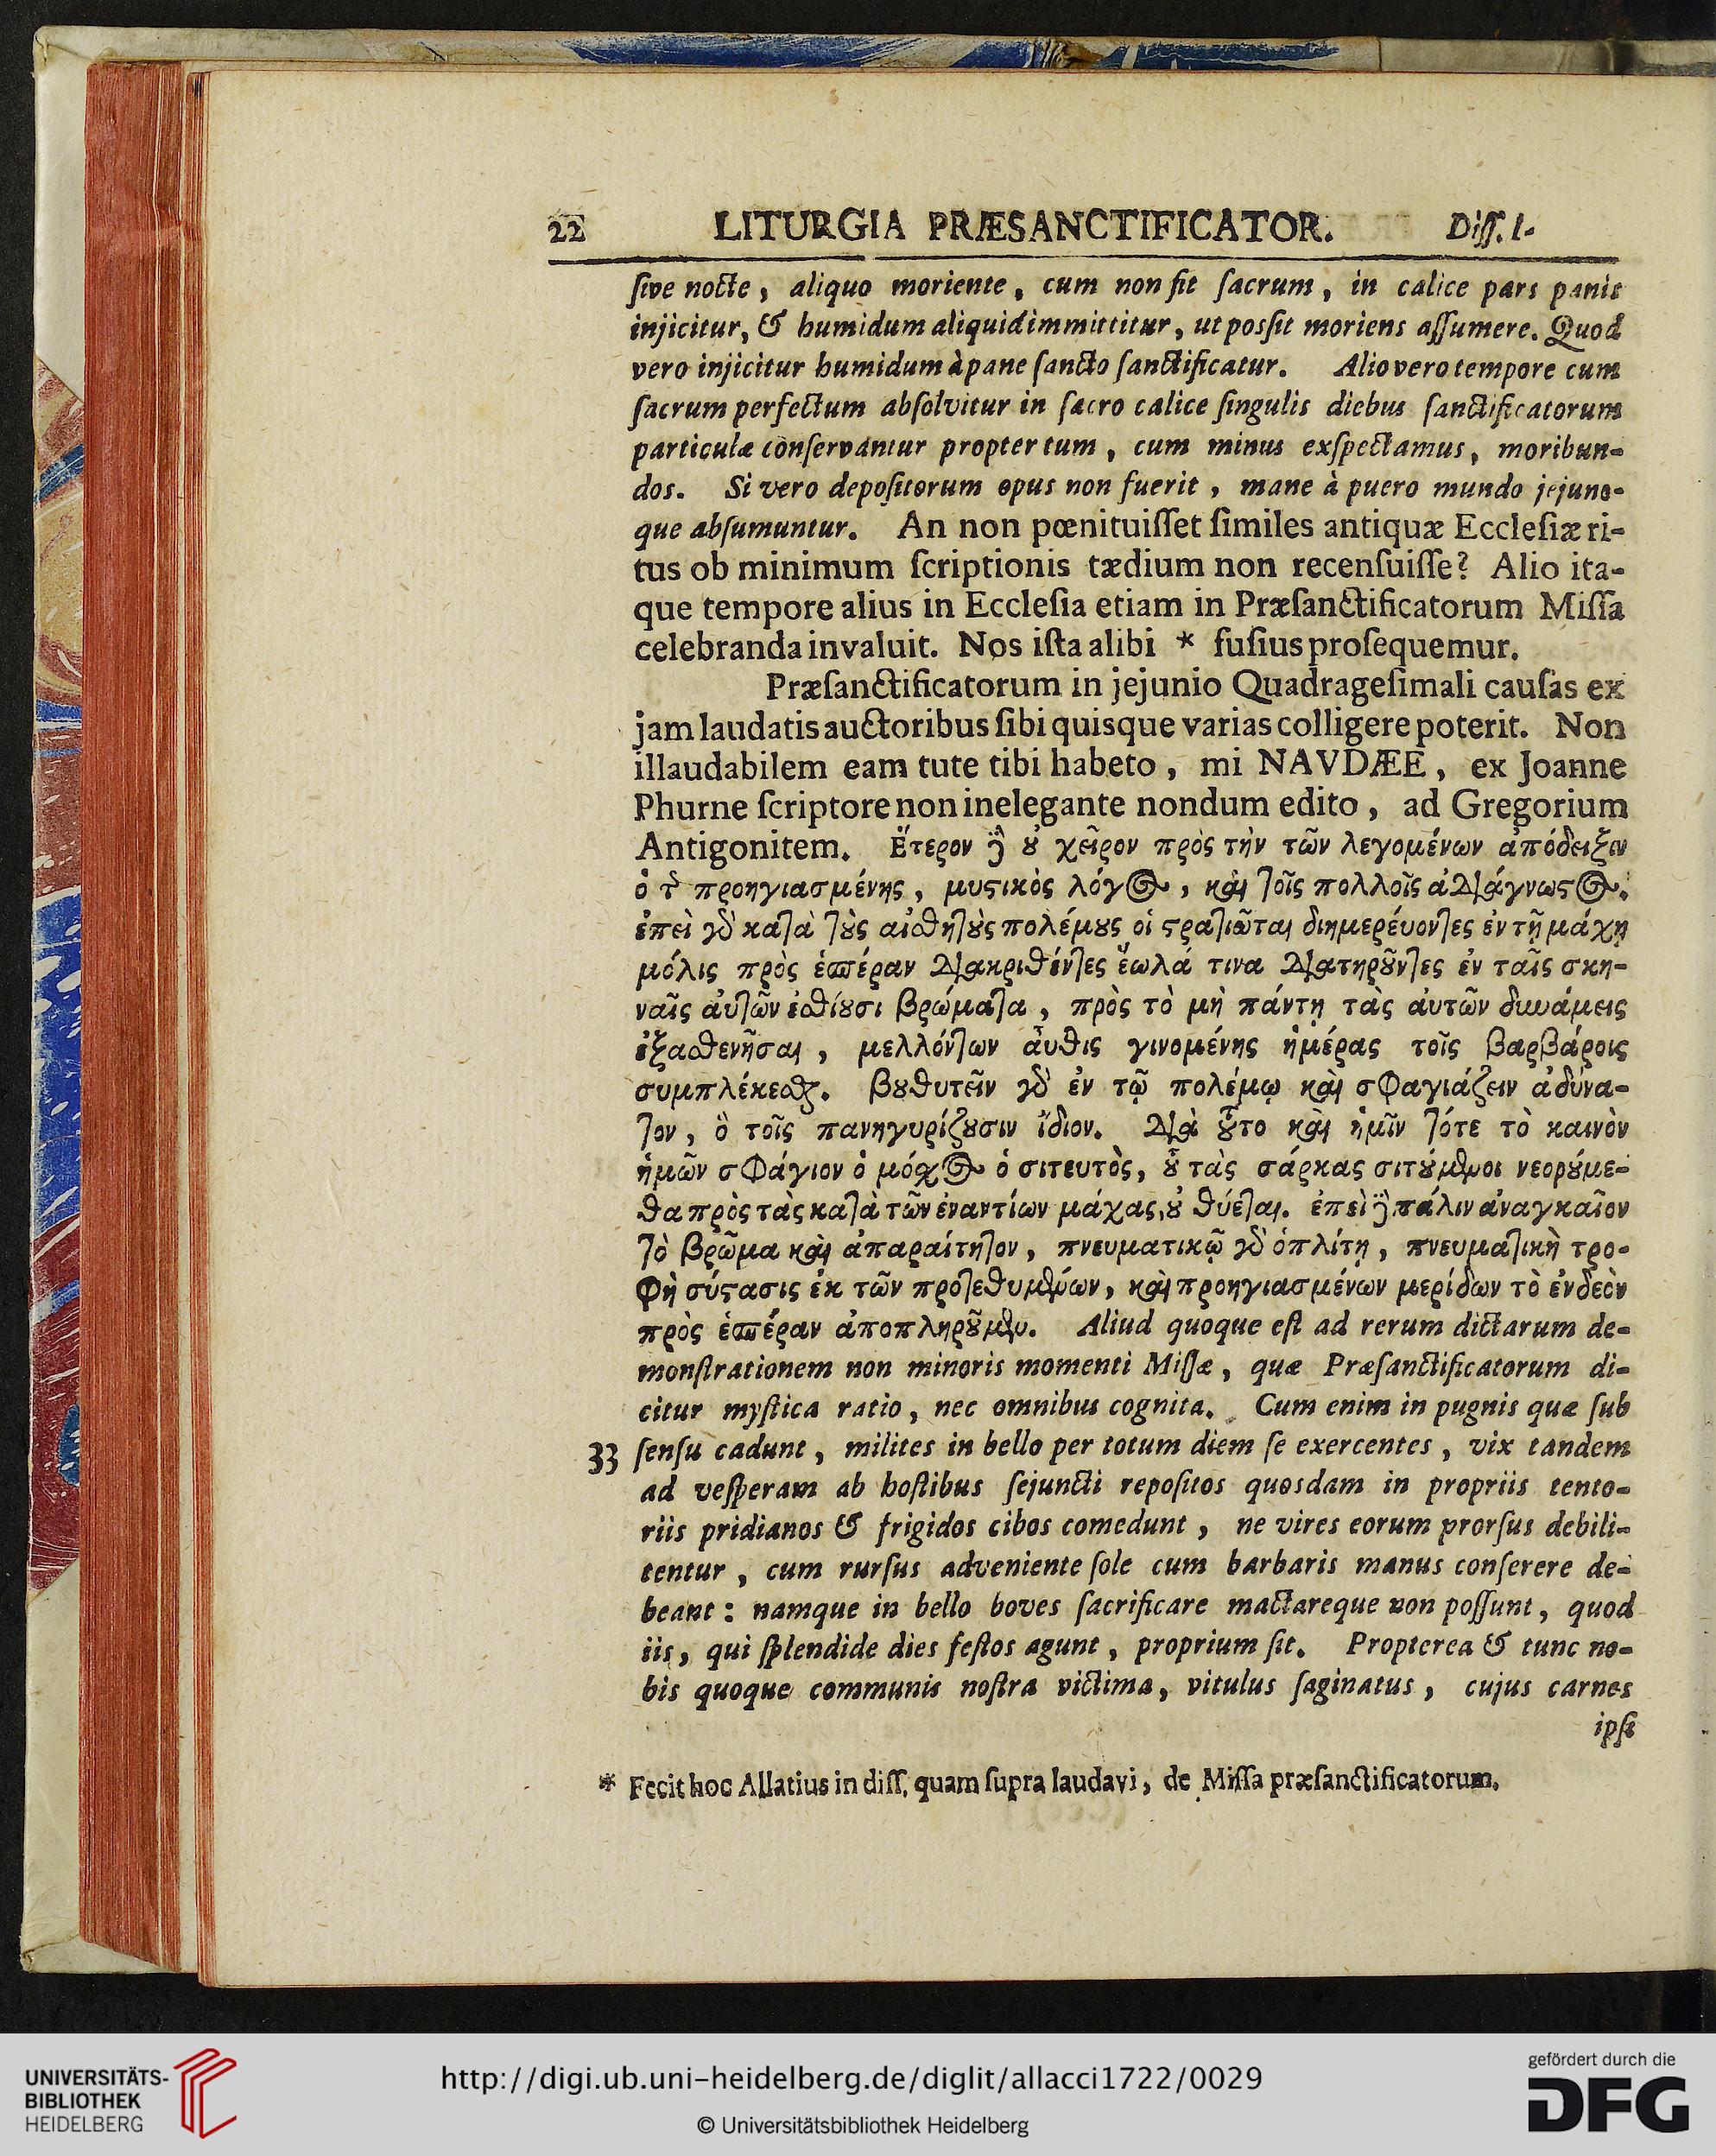 22 LITURGIA PRÆSANCTIFICATOR. Diſſ. I.
ſive nocte, aliquo moriente, cum non fit ſacrum, in calice pars panis
injicitur, & humidum aliquid immittitur, ut posſit moriens aſſumere. Quod
vero injicitur humidum à pane ſancto ſanctificatur. Alio vero tempore cum
ſacrum perfectum abſolvitur in ſacro calice ſingulis diebus ſanctificatorum
particulæ conſervantur propter tum, cum minus exſpectamus, moribun-
dos. Si vero depoſitorum opus non fuerit, mane à puero mundo jejuno-
que abſumuntur. An non pœnituiſſet ſimiles antiquæ Eccleſiæ ri-
tus ob minimum ſcriptionis tædium non recenſuiſſe? Alio ita-
que tempore alius in Eccleſia etiam in Præſanctificatorum Miſſa
celebranda invaluit. Nos iſta alibi * fuſius proſequemur.
Præſanctificatorum in jejunio Quadrageſimali cauſas ex
jam laudatis auctoribus ſibi quisque varias colligere poterit. Non
illaudabilem eam tute tibi habeto, mi NAVDÆE, ex Joanne
Phurne ſcriptore non inelegante nondum edito, ad Gregorium
Antigonitem. Ἕτερον δὲ ȣ̓ χεῖρον πρὸς τὴν τῶν λεγομένων ἀπόδειξιν
ὁ τῆς προηγιασμένης, μυςικὸς λόγος, καὶ τοῖς πολλοῖς ἀδιάγνωςος.
ἐπεὶ γὸ καταὶ τȣ̀ς αἰσθητȣ̀ς πολέμȣς οἱ ςρατιῶται διημερέυοντες ἐν τῇ μάχῃ
μόλις πρὸς ἑσπέραν διακριθέντες ἕωλά τινα διατηρȣ͂ντες ἐν ταῖς σκη-
ναῖς ἀυτῶν ἐσθίȣσι βρώματα, πρὸς τὸ μὴ πάντῃ τὰς ἀυτῶν δυνάμεις
ἐξασθενῆσαι, μελλόντων ἆυθις γινομένης ἡμέρας τοῖς βαρβάροις
συμπλέκεσθαι. βȣθυτεῖν γὸ ἐν τῷ πολέμῳ καὶ σφαγιάζειν ἀδύνα-
τον, ὃ τοῖς πανηγυρίζȣσιν ἴδιον. Διὰ τȣ͂το καὶ ἡμῖν τότε τὸ καινὸν
ἡμῶν σφάγιον ὁ μόχος ὁ σιτευτὸς, ȣ̔͂ τὰς σάρκας σιτȣ́μενοι νεορȣ́με-
θα πρὸς τὰς κατὰ τῶν ἐναντίων μάχας, ȣ̓ θύεται. ἐπεὶ δὲ πάλιν ἀναγκαῖον
τὸ βρῶμα καὶ ἀπαραίτητον, πνευματικῷ γὸ ὁπλίτῃ, πνευματικὴ τρο-
φὴ σύςασις ἐκ τῶν προτεθυμένων, καὶ προηγιασμένων μερίδων τὸ ἐνδεὸν
πρὸς ἑσπέραν ἀποπληρȣ͂μεν. Aliud quoque eſt ad rerum dictarum de-
monſtrationem non minoris momenti Miſſæ, quæ Præſanctificatorum di-
citur myſtica ratio, nec omnibus cognita. Cum enim in pugnis quæ ſub
33 ſenſu cadunt, milites in bello per totum diem ſe exercentes, vix tandem
ad veſperam ab hoſtibus ſejuncti repoſitos quosdam in propriis tento-
riis pridianos & frigidos cibos comedunt, ne vires eorum prorſus debili-
tentur, cum rurſus adveniente ſole cum barbaris manus conſerere de-
beant: namque in bello boves ſacrificare mactareque non poſſunt, quod
iis, qui ſplendide dies feſtos agunt, proprium ſit. Propterea & tunc no-
bis quoque communis noſtra victima, vitulus ſaginatus, cujus carnes
ipſi
* Fecit hoc Allatius in diſſ. quam ſupra laudavi, de Miſſa præſanctificatorum.
UNIVERSITÄTS-
BIBLIOTHEK
HEIDELBERG
http://digi.ub.uni-heidelberg.de/diglit/allacci1722/0029
© Universitätsbibliothek Heidelberg
gefördert durch die
DFG